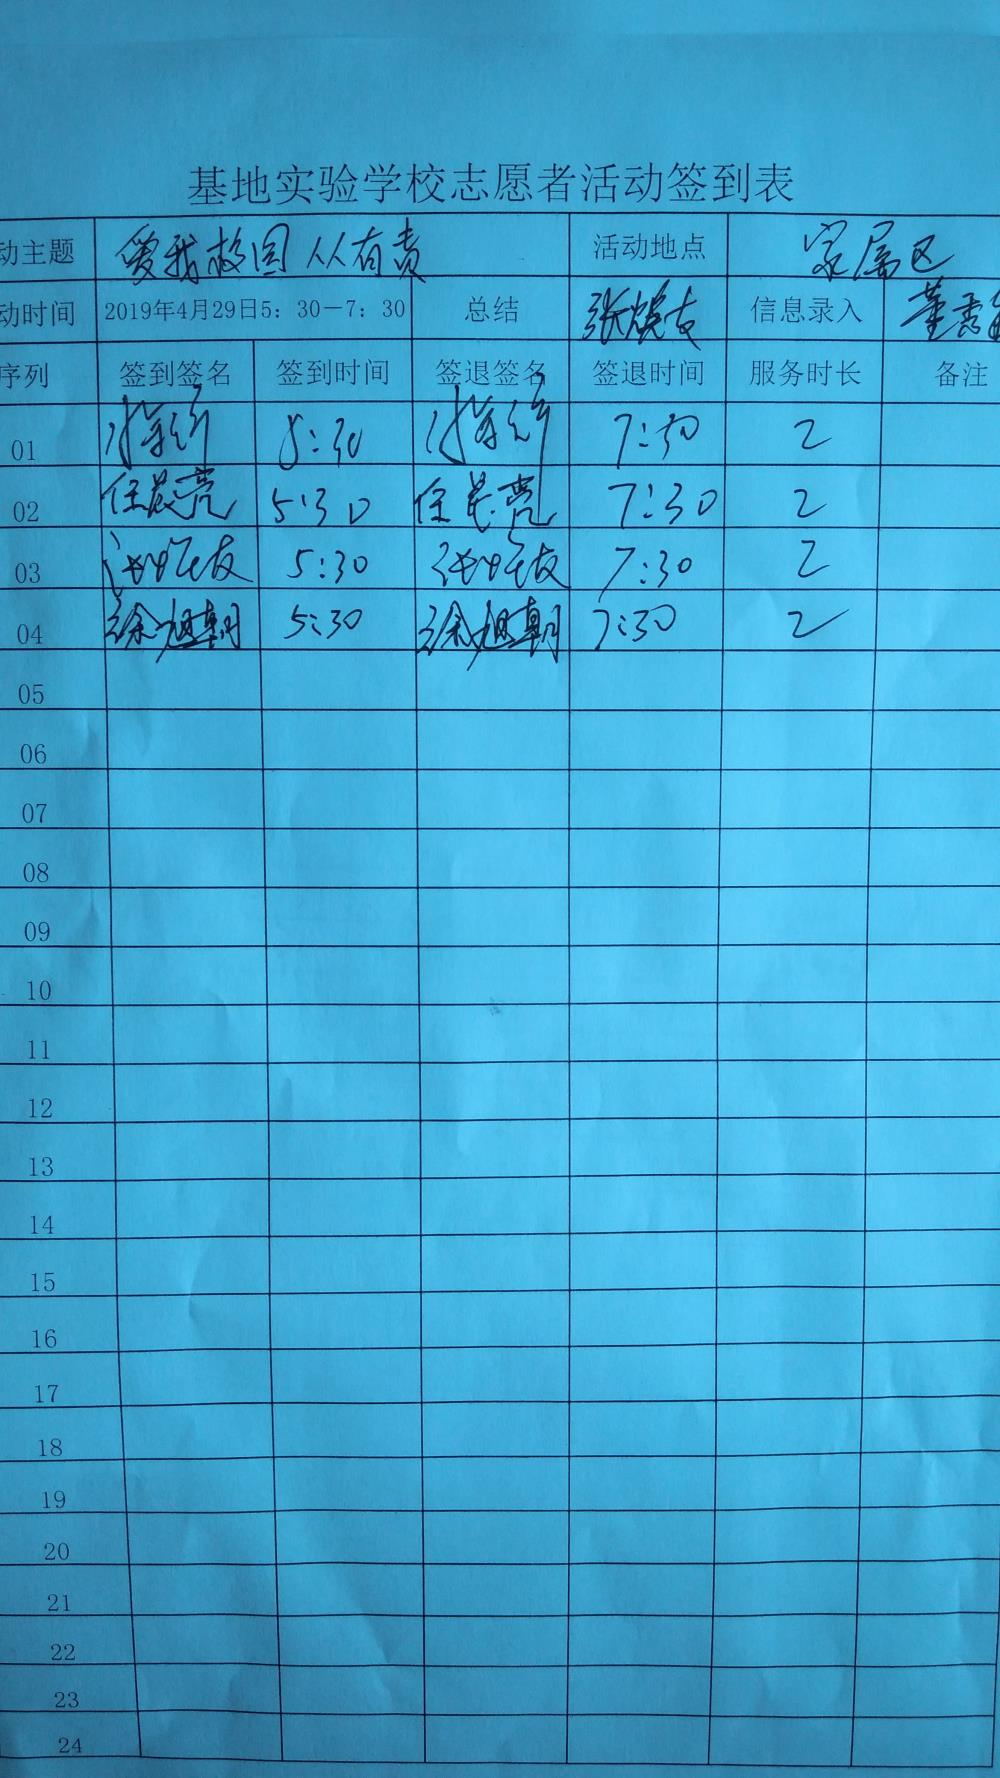 基地实验学校志愿者活动签到表
动主题 爱我校园 人人有责 活动地点 家属区
动时间 2019年4月29日5：30－7：30 总结 信息录入 董
序列 签到签名 签到时间 签退签名 签退时间 服务时长 备注
01 5:30 7:30 2
02 任茂亮 5:30 任茂亮 7:30 2
03 5:30 7:30 2
04 徐旭朝 5:30 徐旭朝 7:30 2
05
06
07
08
09
10
11
12
13
14
15
16
17
18
19
20
21
22
23
24